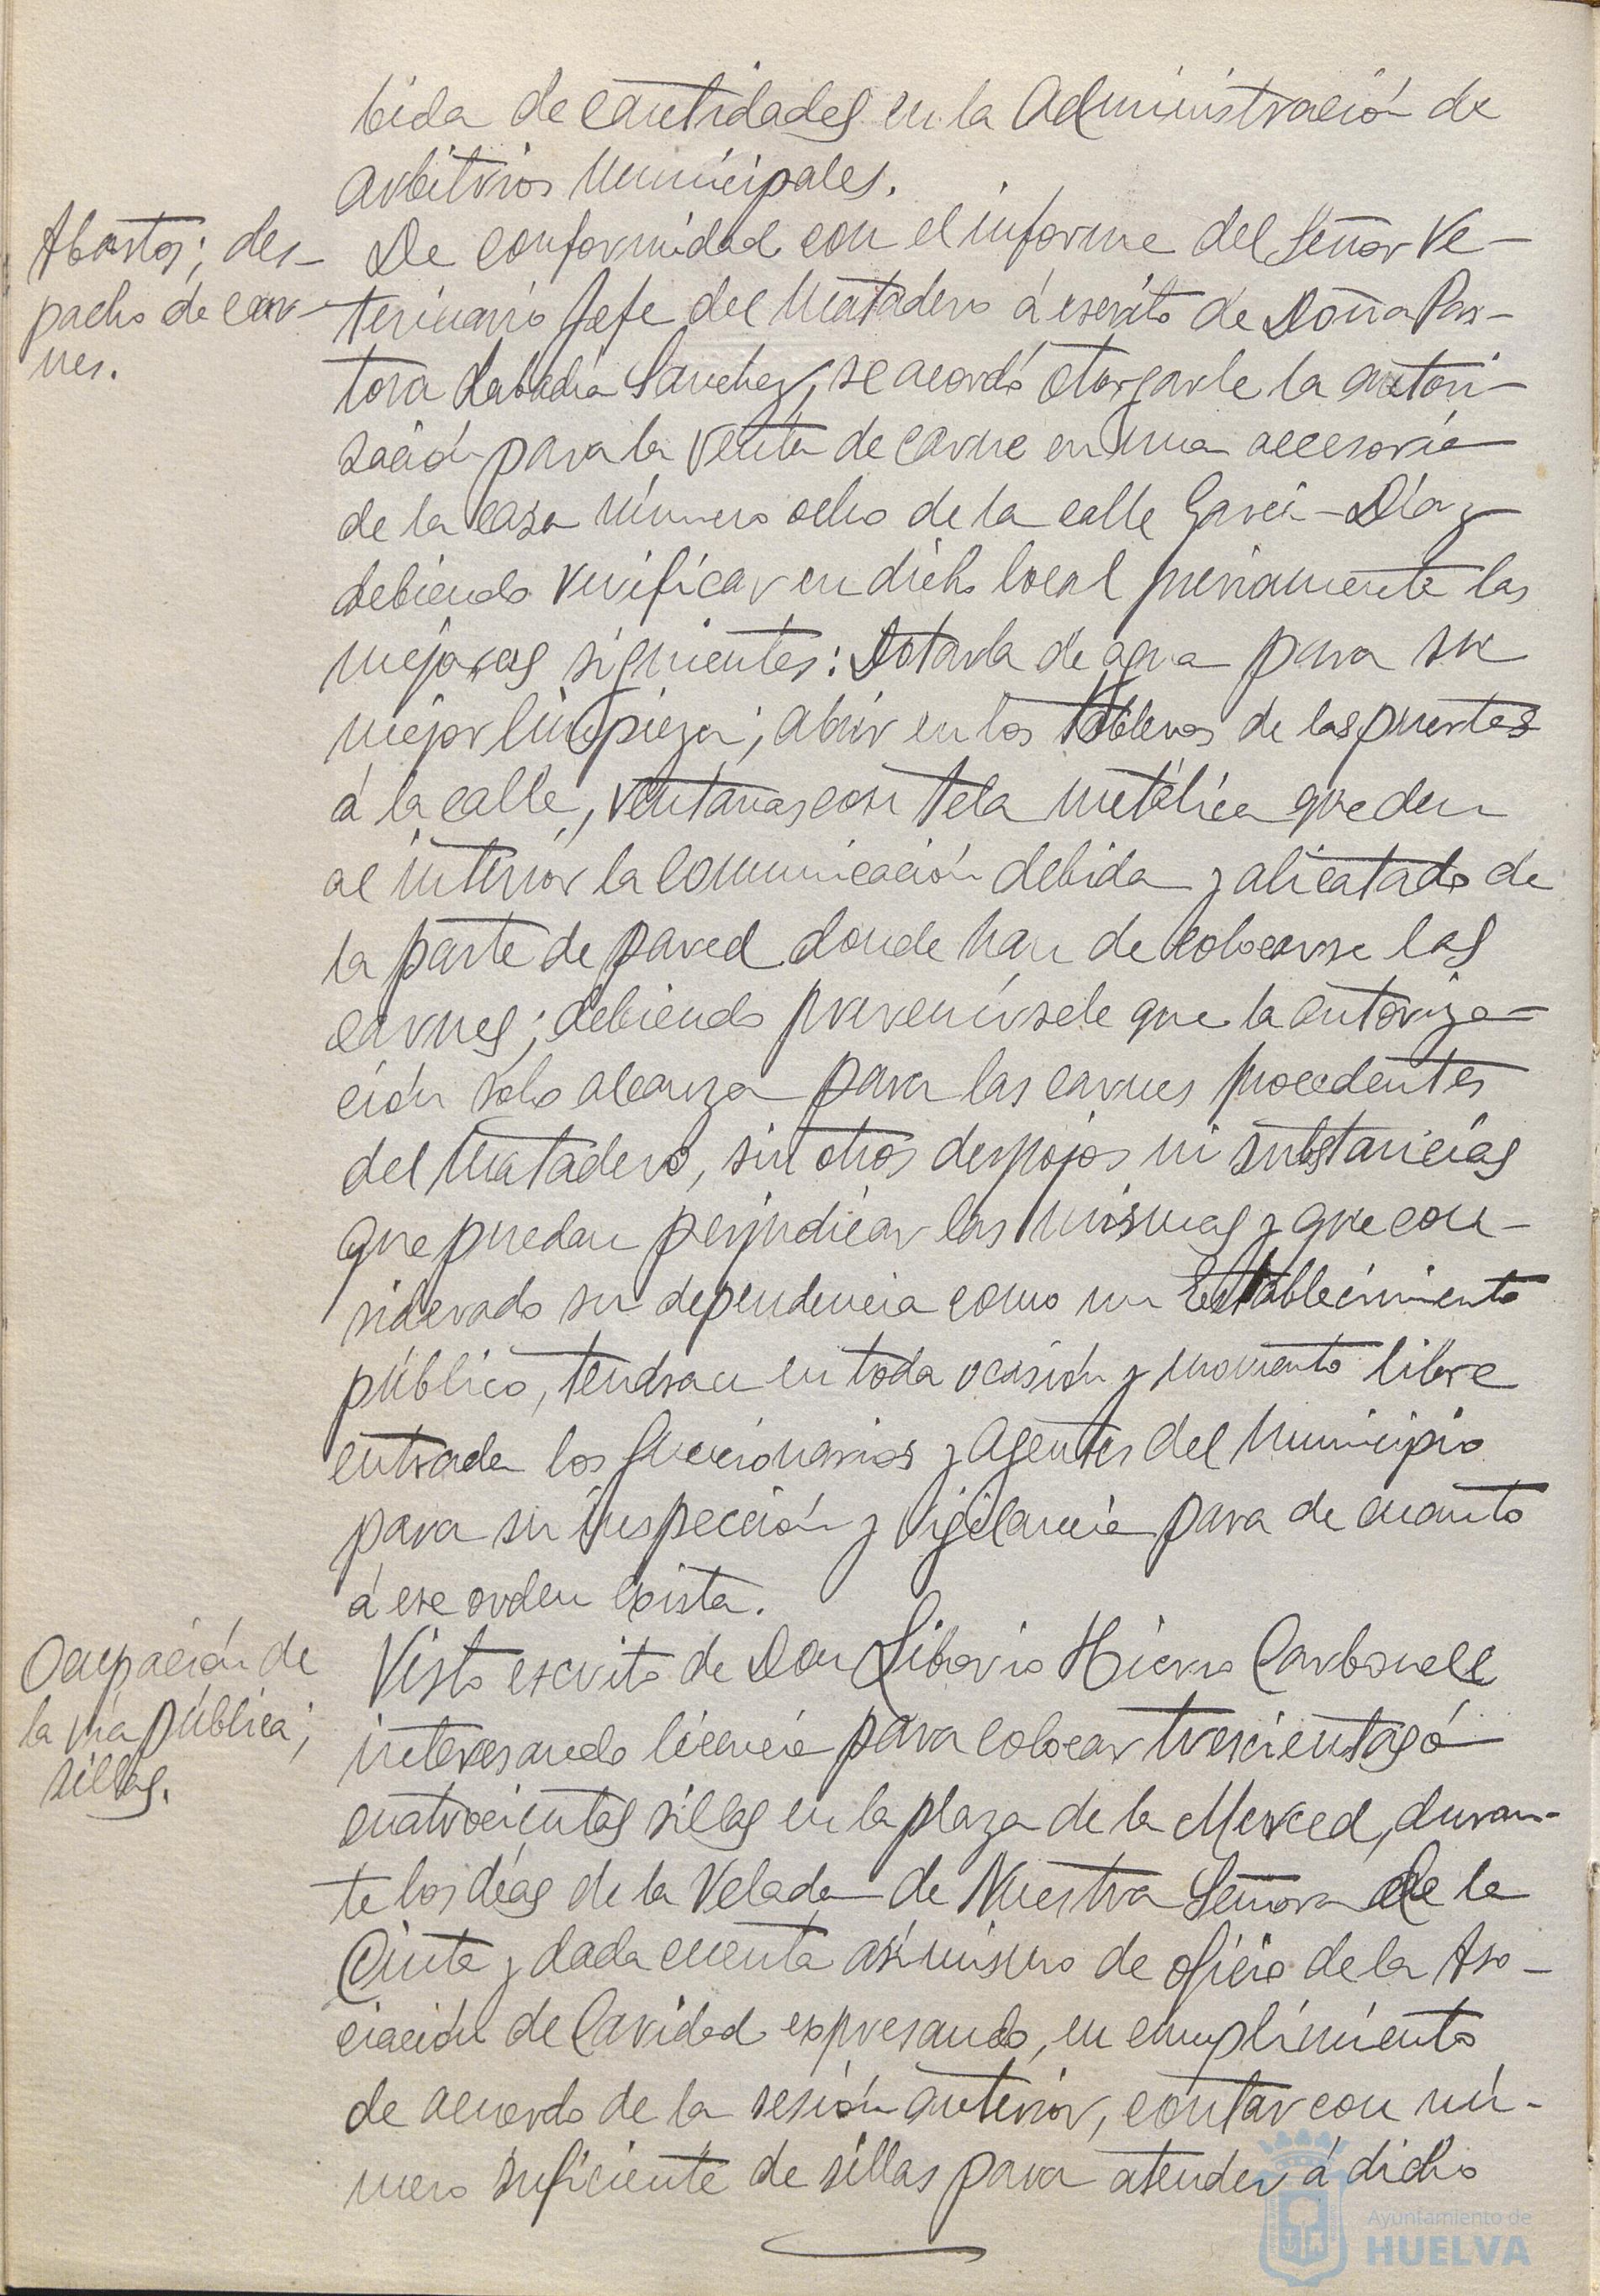 bida de cantidades en la Administración de
arbitrios municipales.
Abastos; des-
pacho de car-
nes.
De conformidad con el informe del Señor Ve-
terinario Jefe del Matadero á escrito de Doña Pas-
tora Labadía Sanchez, se acordó otorgarle la autori-
zación para la venta de carne en una accesoria
de la casa número ocho de la calle Garci-Díaz
debiendo verificar en dicho local previamente las
mejoras siguientes: Dotarla de agua para su
mejor limpieza; abrir en los tableros de las puertas
á la calle, ventanas con tela metálica que den
al interior la comunicación debida y alicatado de
la parte de pared donde han de colocarse las
carnes; debiendo prevenírsele que la autoriza-
ción solo alcanza para las carnes procedentes
del Matadero, sin otros despojos ni substancias
que puedan perjudicar las mismas y que con-
siderado su dependencia como un Establecimiento
público, tendrán en toda ocasión y momento libre
entrada los funcionarios y agentes del Municipio
para su inspección y vigilancia para de cuanto
á ese orden exista.
Ocupación de
la vía pública;
sillas.
Visto escrito de Don Liborio Hierro Carbonell
interesando licencia para colocar trescientas ó
cuatrocientas sillas en la plaza de la Merced, duran-
te los días de la Velada de Nuestra Señora de la
Cinta y dada cuenta asimismo de oficio de la Aso-
ciación de Caridad expresando, en cumplimiento
de acuerdo de la sesión anterior, contar con nú-
mero suficiente de sillas para atender á dicho
Ayuntamiento de
HUELVA